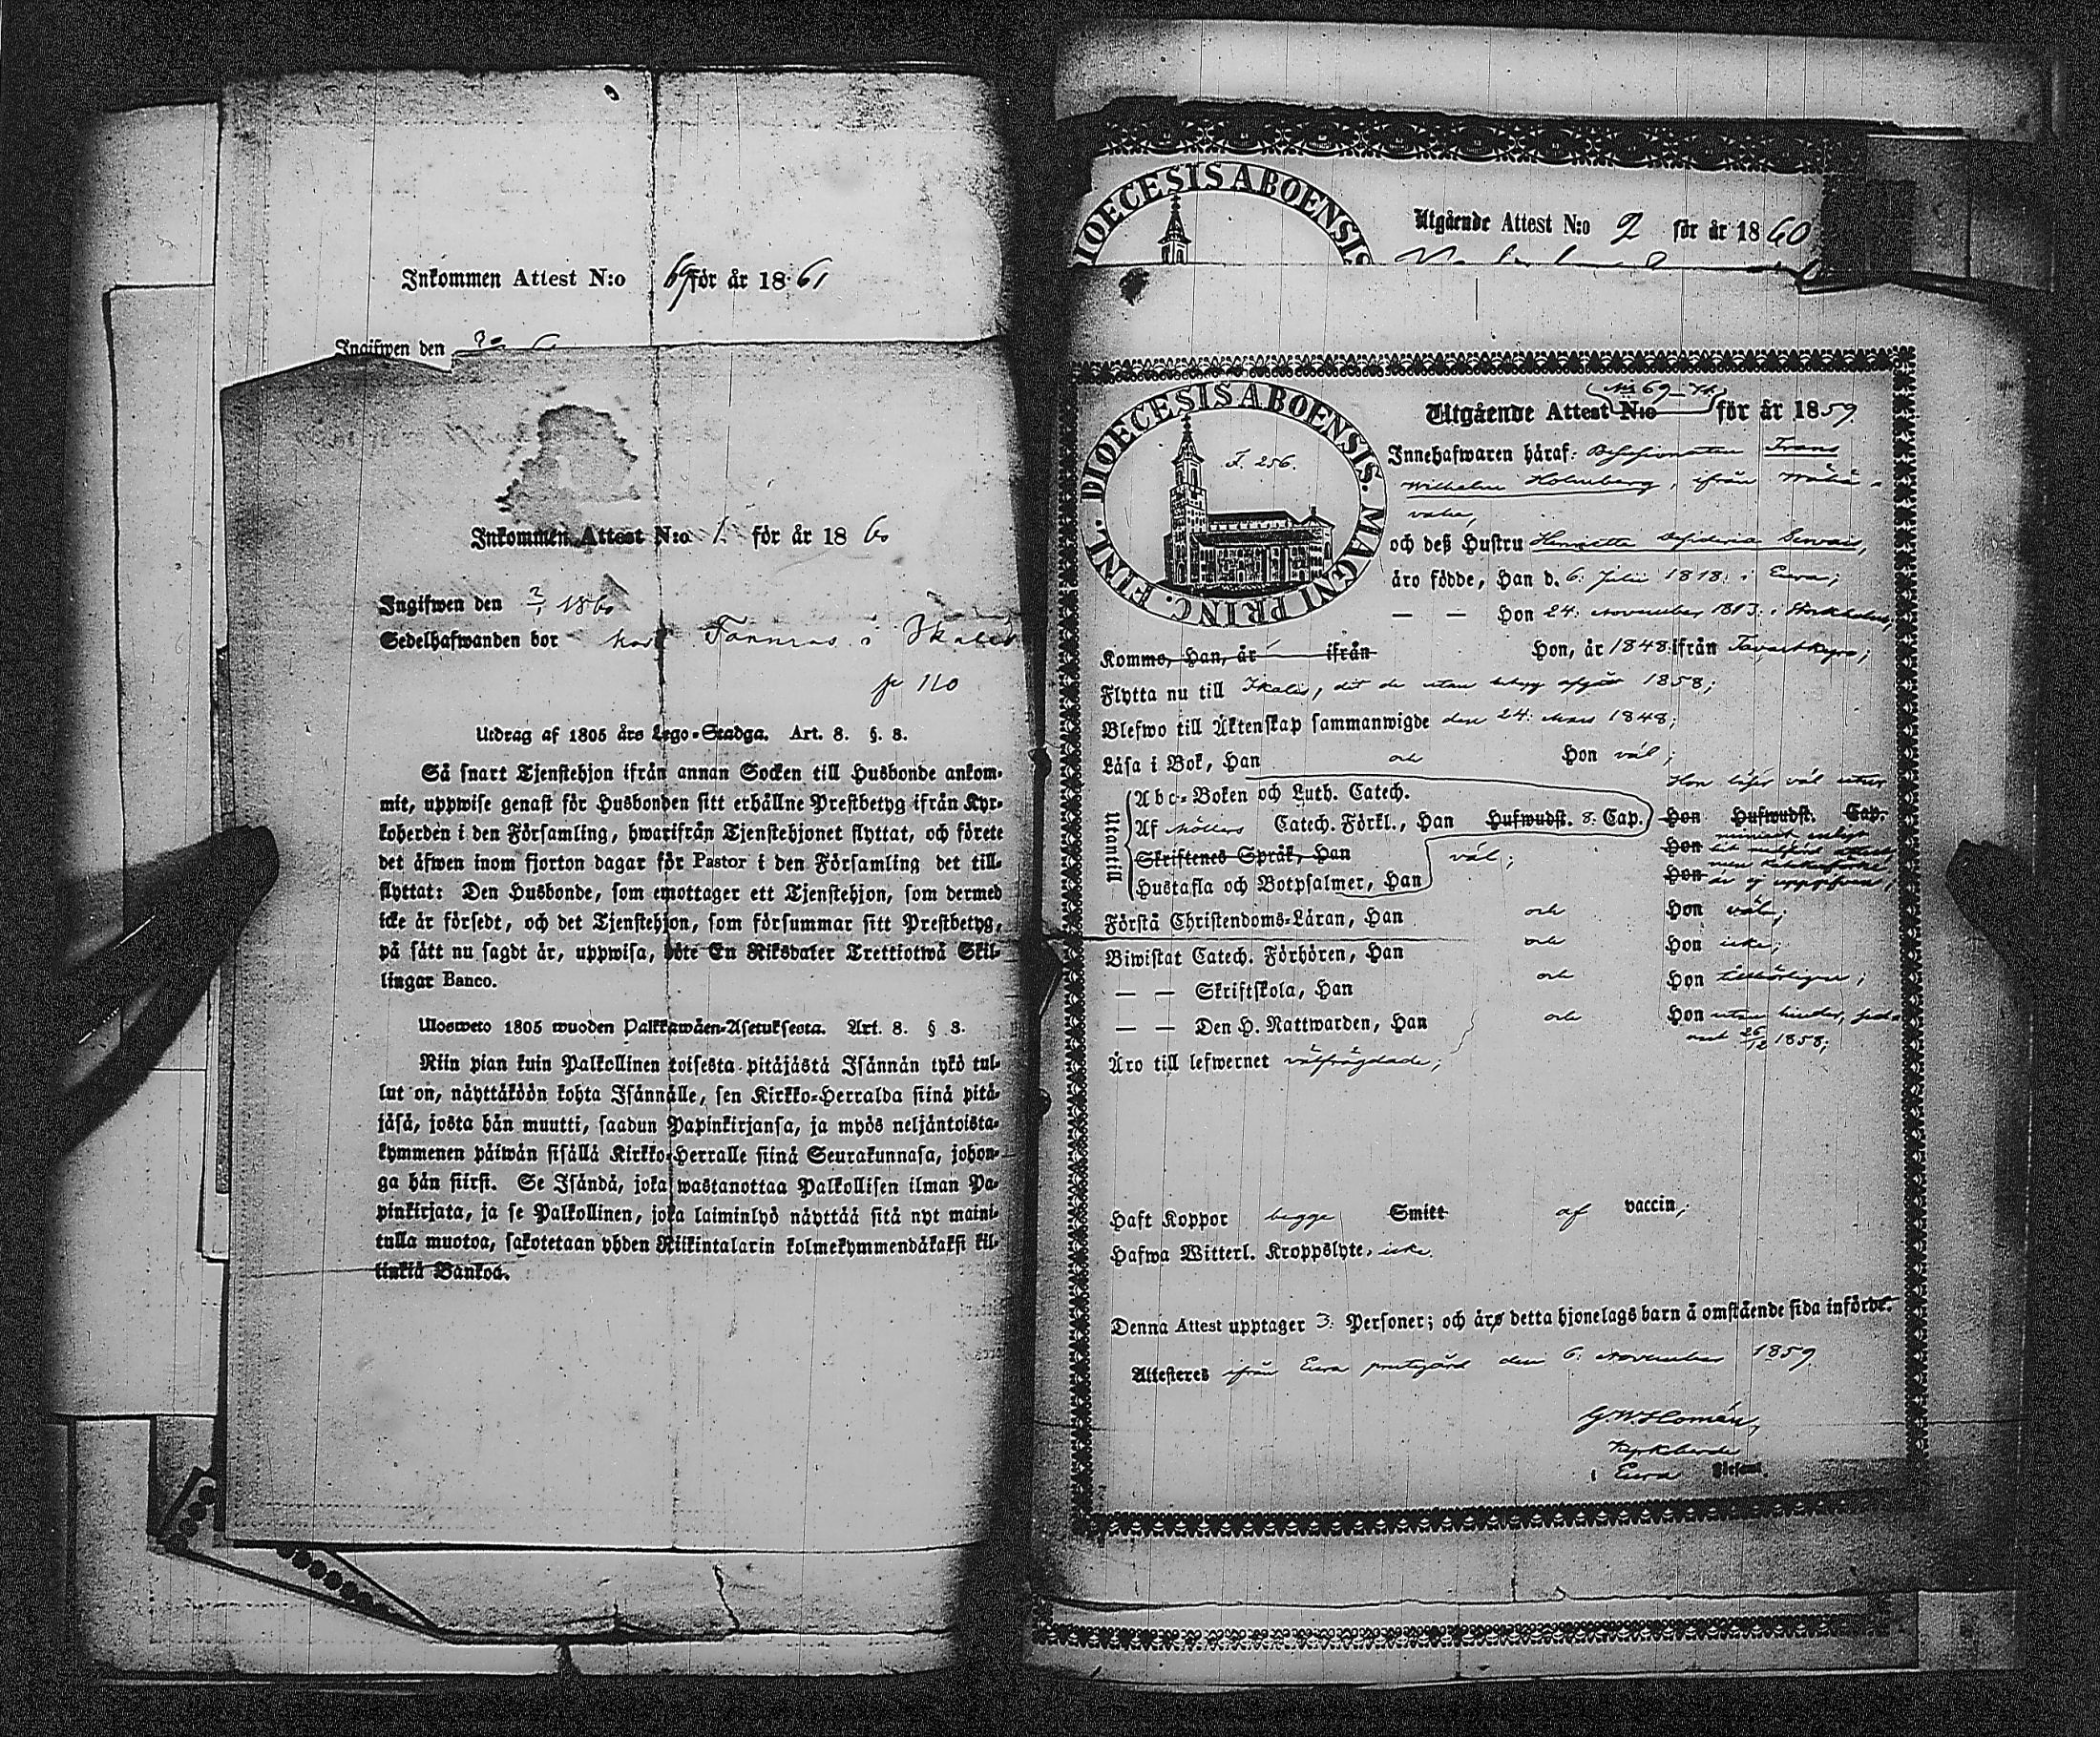 Inkommen Attest N:o 69 för år 1861
Ingifwen den
Inkommen Attest N:o 1. för år 1860
Ingifwen den 2/1 1860
Sedelhafwanden bor hos Tannras i Ikalis
p 110
Utdrag af 1805 års Lego-Stadga. Art. 8. §. 8.
Så snart Tjenstehjon ifrån annan Socken till Husbonde ankom-
mit, uppwise genast för Husbonden sitt erhållne Prestbetyg ifrån Kyr-
koherden i den Församling, hwarifrån Tjenstehjonet flyttat, och förete
det äfwen inom fjorton dagar för Pastor i den Församling det till-
flyttat: Den Husbonde, som emottager ett Tjenstehjon, som dermed
icke är försedt, och det Tjenstehjon, som försummar sitt Prestbetyg,
på sätt nu sagdt är, uppwisa, böte En Riksdaler Trettiotwå Skil-
lingar Banco.
Ulosweto 1805 wuoden Palkkawäen-Asetuksesta. Art. 8. § 8.
Niin pian kuin Palkollinen toisesta pitäjästä Isännän tykö tul-
lut on, näyttäköön kohta Isännälle, sen Kirkko-Herralda siinä pitä-
jäsä, josta hän muutti, saadun Papinkirjansa, ja myös neljäntoista-
kymmenen päiwän sisällä Kirkko-Herralle siinä Seurakunnasa, johon-
ga hän siirsi. Se Isändä, joka wastanottaa Palkollisen ilman Pa-
pinkirjata, ja se Palkollinen, joka laiminlyö näyttää sitä nyt maini-
tulla muotoa, sakotetaan yhden Riikintalarin kolmekymmendäkaksi kil-
linkiä Bankoa.
DIOECESIS ABOENSIS
Utgående Attest N:o 2 för år 1860
DIOECESIS ABOENSIS. MAGNI PRINC. FINL.
F. 256.
Utgående Attest N:o 69 för år 1859.
Innehafwaren häraf: Frans
Wilhelm Holmberg, ifrån
och deß Hustru Henrietta Desideria
äro födde, Han d. 6. Julii 1818. i Eura;
— — Hon 24. November 1813. i Stockholm,
Komme, Han, år ifrån Hon, år 1848 ifrån Tavastkyro;
Flytta nu till Ikalis, dit de utan betyg afgått 1858;
Blefwo till Äktenskap sammanwigde den 24. Mars 1848;
Läsa i Bok, Han och Hon väl;
Utantill
Abc-Boken och Luth. Catech.
Af Möllers Catech. Förkl., Han Hufwudst. 8. Cap. Hon Hufwudst. Cap.
Skriftenes Språk, Han väl; Hon
Hustafla och Botpsalmer, Han Hon
Hon läser väl
Förstå Christendoms-Läran, Han och Hon väl;
Biwistat Catech. Förhören, Han och Hon icke;
— — Skriftskola, Han och Hon tillbörligen;
— — Den H. Nattwarden, Han och Hon utan hinder,
26/12 1858;
Äro till lefwernet välfrägdade;
Haft Koppor begge Smitt af vaccin;
Hafwa Witterl. Kroppslyte, icke.
Denna Attest upptager 3. Personer; och äro detta hjonelags barn å omstående sida införde.
Attesteres ifrån Eura prestgård den 6. November 1859.
G.W. Homén,
Kyrkoherde
i Eura